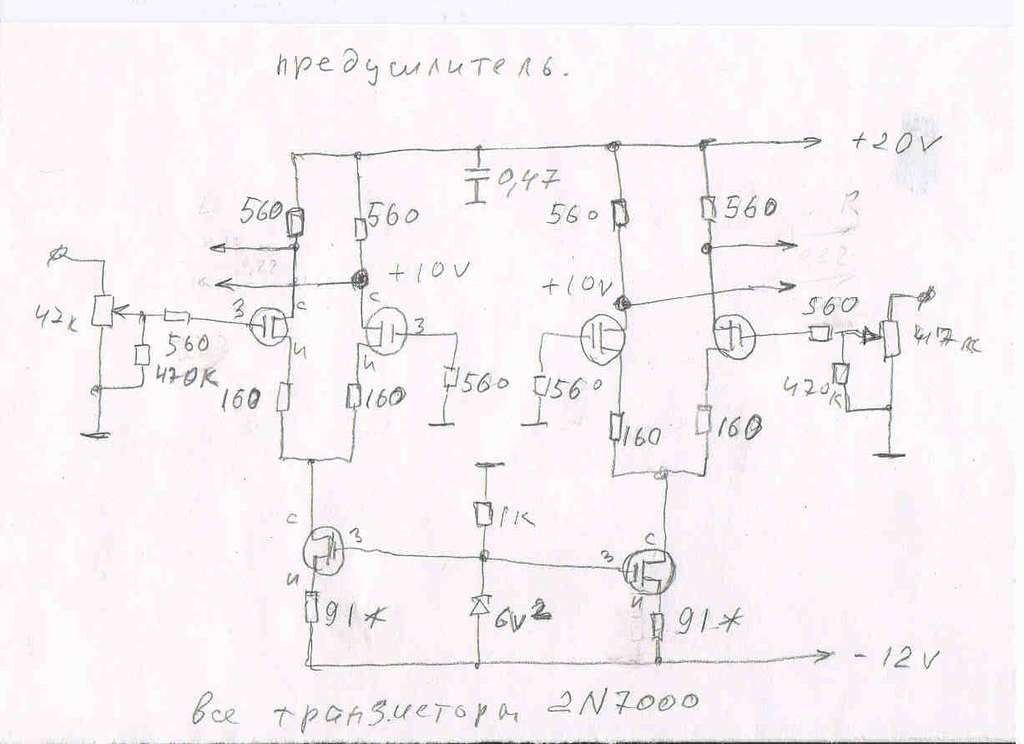 предусилитель.
+20V
0,47
560
560
560
560
+10V
+10V
с
с
47к
з
з
560
560
и
и
470К
470к
47к
160
160
560
560
160
160
1к
с
з
з
с
и
и
91*
6V2
91*
-12V
все транзисторы 2N7000